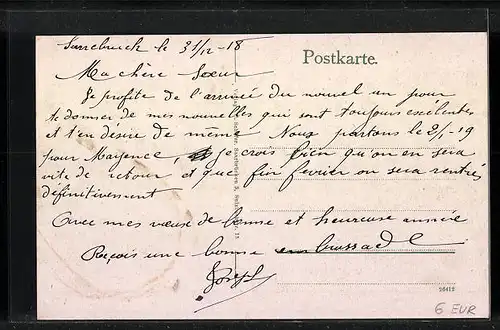 Sarrebruck le 31/12-18
Postkarte.
Ma chère Soeur
Je profite de l'arrivée du nouvel an pour
te donner de mes nouvelles qui sont toujours excelentes
et t'en désire de même Nous partons le 2/1-19
pour Mayence, je crois bien qu'on en sera
vite de retour et que fin fevrier on sera rentrés
définitivement
Avec mes vœux de bonne et heureuse année
Reçois une bonne embrassade
Joseph
26412
6 EUR